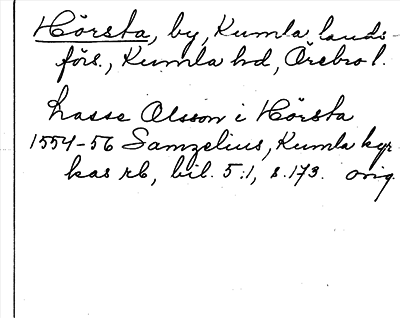 Hörsta, by, Kumla lands-
förs., Kumla hd, Örebro l.
Lasse Olsson i Hörsta
1554-56 Samzelius, Kumla kyr
kas rb, bil. 5:1, s. 173. orig.